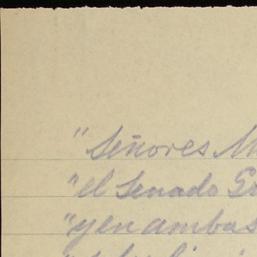 "Señores M
"el Senado
"y en ambas